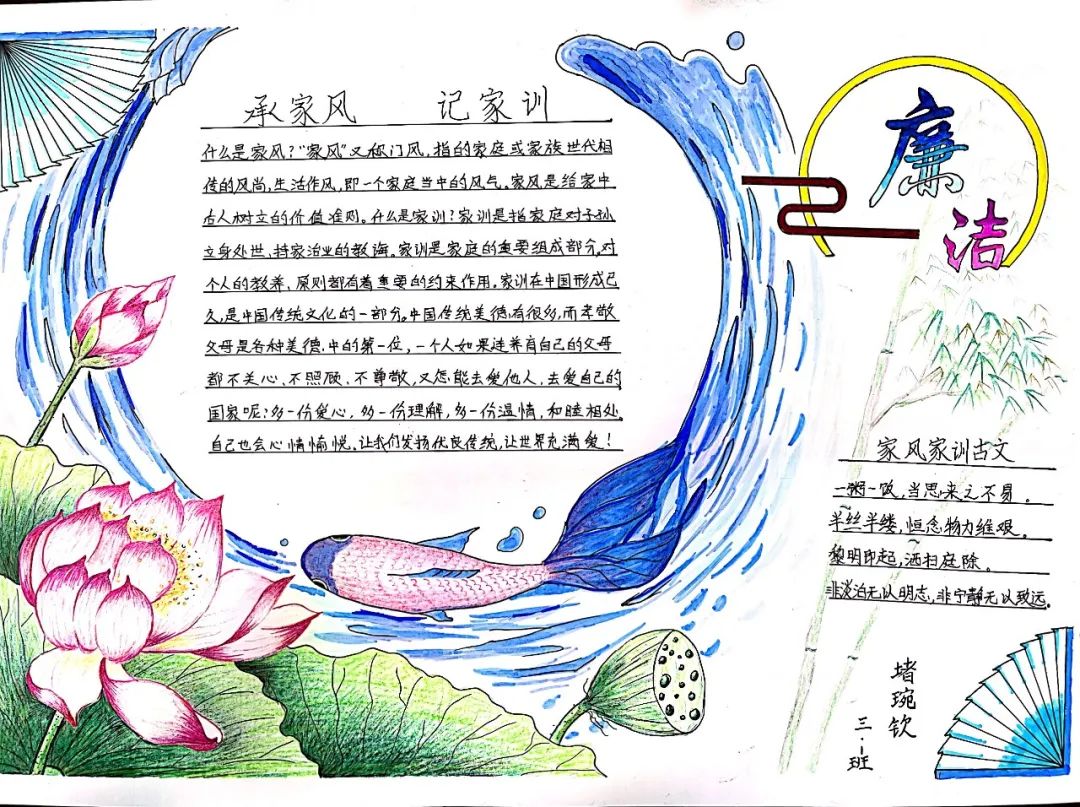 承家风 记家训
什么是家风?"家风"又称门风,指的家庭或家族世代相
传的风尚,生活作风,即一个家庭当中的风气。家风是给家中
古人树立的价值准则。什么是家训?家训是指家庭对子孙
立身处世、持家治业的教诲。家训是家庭的重要组成部分,对
个人的教养、原则都有着重要的约束作用。家训在中国形成已
久,是中国传统文化的一部分。中国传统美德有很多,而孝敬
父母是各种美德,中的第一位,一个人如果连养育自己的父母
都不关心、不照顾、不尊敬,又怎能去爱他人,去爱自己的
国家呢?多一份爱心,多一份理解,多一份温情,和睦相处。
自己也会心情愉悦。让我们发扬优良传统,让世界充满爱!
廉
洁
家风家训古文
一粥一饭,当思来之不易。
半丝半缕,恒念物力维艰。
黎明即起,洒扫庭除。
非淡泊无以明志,非宁静无以致远。
堵琬钦
三·班